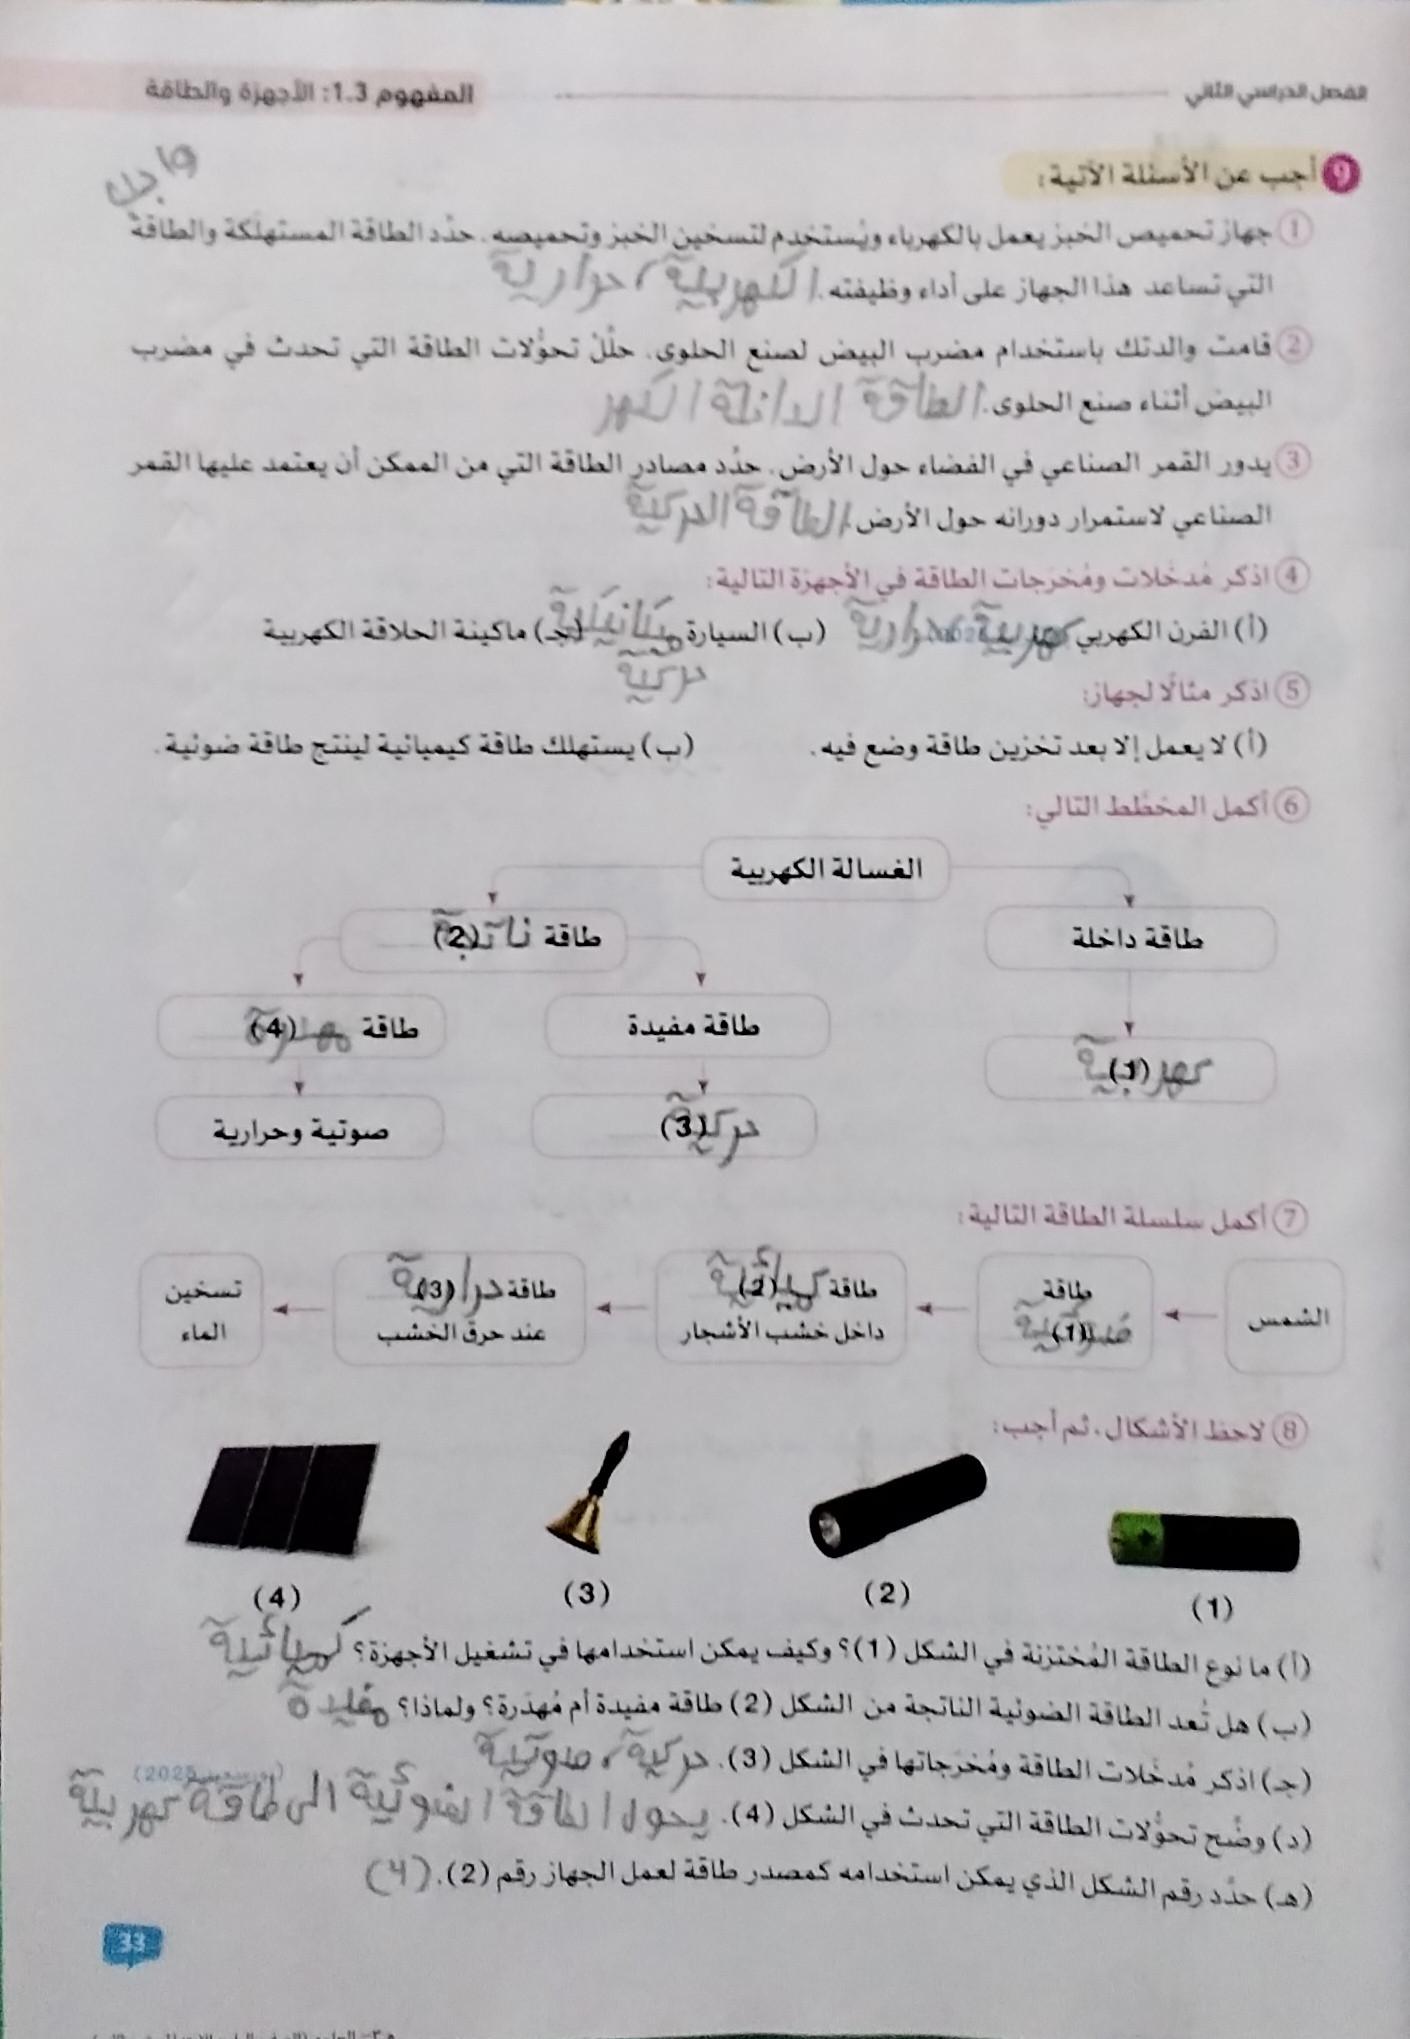 الفصل الدراسي الثاني
المفهوم 1.3: الأجهزة والطاقة
واجب
9 أجب عن الأسئلة الآتية:
1 جهاز تحميص الخبز يعمل بالكهرباء ويُستخدم لتسخين الخبز وتحميصه. حدِّد الطاقة المستهلكة والطاقة
التي تساعد هذا الجهاز على أداء وظيفته. الكهربية / حرارية
2 قامت والدتك باستخدام مضرب البيض لصنع الحلوى. حلِّلْ تحوُّلات الطاقة التي تحدث في مضرب
البيض أثناء صنع الحلوى. الطاقة الداخلة الكهر
3 يدور القمر الصناعي في الفضاء حول الأرض. حدِّد مصادر الطاقة التي من الممكن أن يعتمد عليها القمر
الصناعي لاستمرار دورانه حول الأرض. الطاقة الحركية
4 اذكر مُدخَلات ومُخرَجات الطاقة في الأجهزة التالية:
(أ) الفرن الكهربي كهربية حرارية (ب) السيارة ميكانيكية (جـ) ماكينة الحلاقة الكهربية
حركية
5 اذكر مثالًا لجهاز:
(أ) لا يعمل إلا بعد تخزين طاقة وضع فيه. (ب) يستهلك طاقة كيميائية لينتج طاقة ضوئية.
6 أكمل المخطَّط التالي:
الغسالة الكهربية
طاقة داخلة
طاقة ناتجة (2)
طاقة مفيدة
طاقة (4) مهدرة
كهربية (1)
حركية (3)
صوتية وحرارية
7 أكمل سلسلة الطاقة التالية:
الشمس
طاقة
ضوئية (1)
طاقة كيميائية (2)
داخل خشب الأشجار
طاقة حرارية (3)
عند حرق الخشب
تسخين
الماء
8 لاحظ الأشكال، ثم أجب:
(1) (2) (3) (4)
(أ) ما نوع الطاقة المُختزنة في الشكل (1)؟ وكيف يمكن استخدامها في تشغيل الأجهزة؟ كيميائية
(ب) هل تُعد الطاقة الضوئية الناتجة من الشكل (2) طاقة مفيدة أم مُهدَرة؟ ولماذا؟ مفيدة
(جـ) اذكر مُدخَلات الطاقة ومُخرَجاتها في الشكل (3). حركية / صوتية
(بورسعيد 2025)
(د) وضِّح تحوُّلات الطاقة التي تحدث في الشكل (4). يحول الطاقة الضوئية الى طاقة كهربية
(هـ) حدِّد رقم الشكل الذي يمكن استخدامه كمصدر طاقة لعمل الجهاز رقم (2). (4)
33